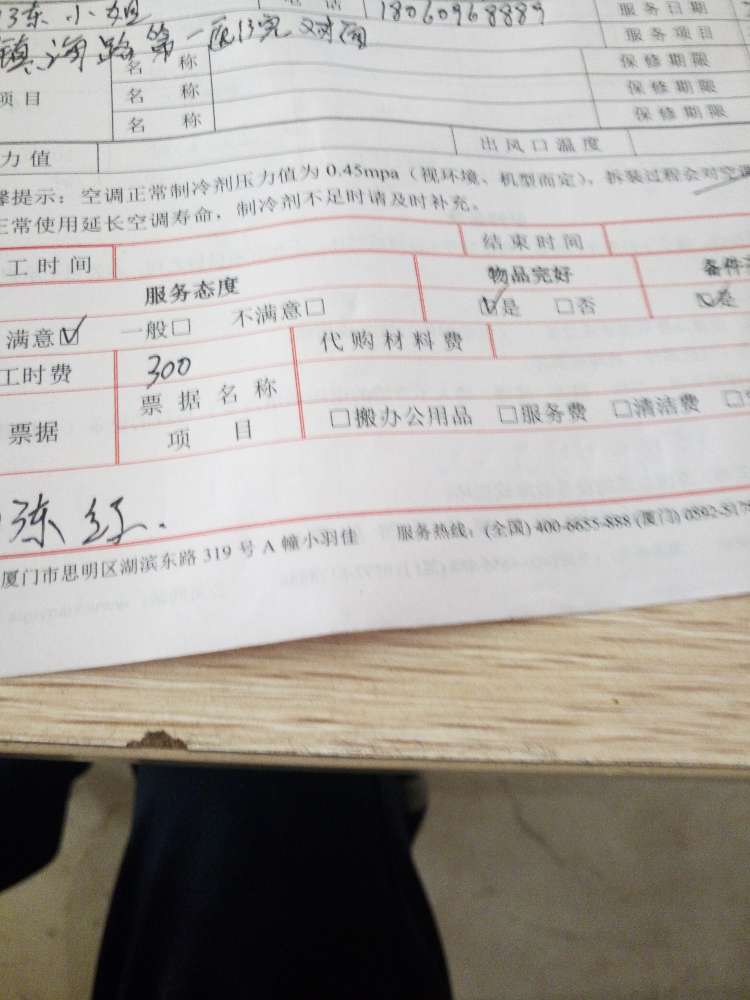 陈小姐 电话 18060968889 服务日期
镇海路第一医院对面 服务项目
名称 保修期限
项目 名称 保修期限
名称 保修期限
力值 出风口温度
提示：空调正常制冷剂压力值为 0.45mpa（视环境、机型而定），拆装过程会对空调
正常使用延长空调寿命，制冷剂不足时请及时补充。
工时间 结束时间
服务态度 物品完好 备件
满意☑ 一般□ 不满意□ ☑是 □否 ☑是
工时费 300 代购材料费
票据 票据名称
项目 □搬办公用品 □服务费 □清洁费 □
陈红.
厦门市思明区湖滨东路 319 号 A 幢小羽佳 服务热线：(全国) 400-6655-888 (厦门) 0592-5176